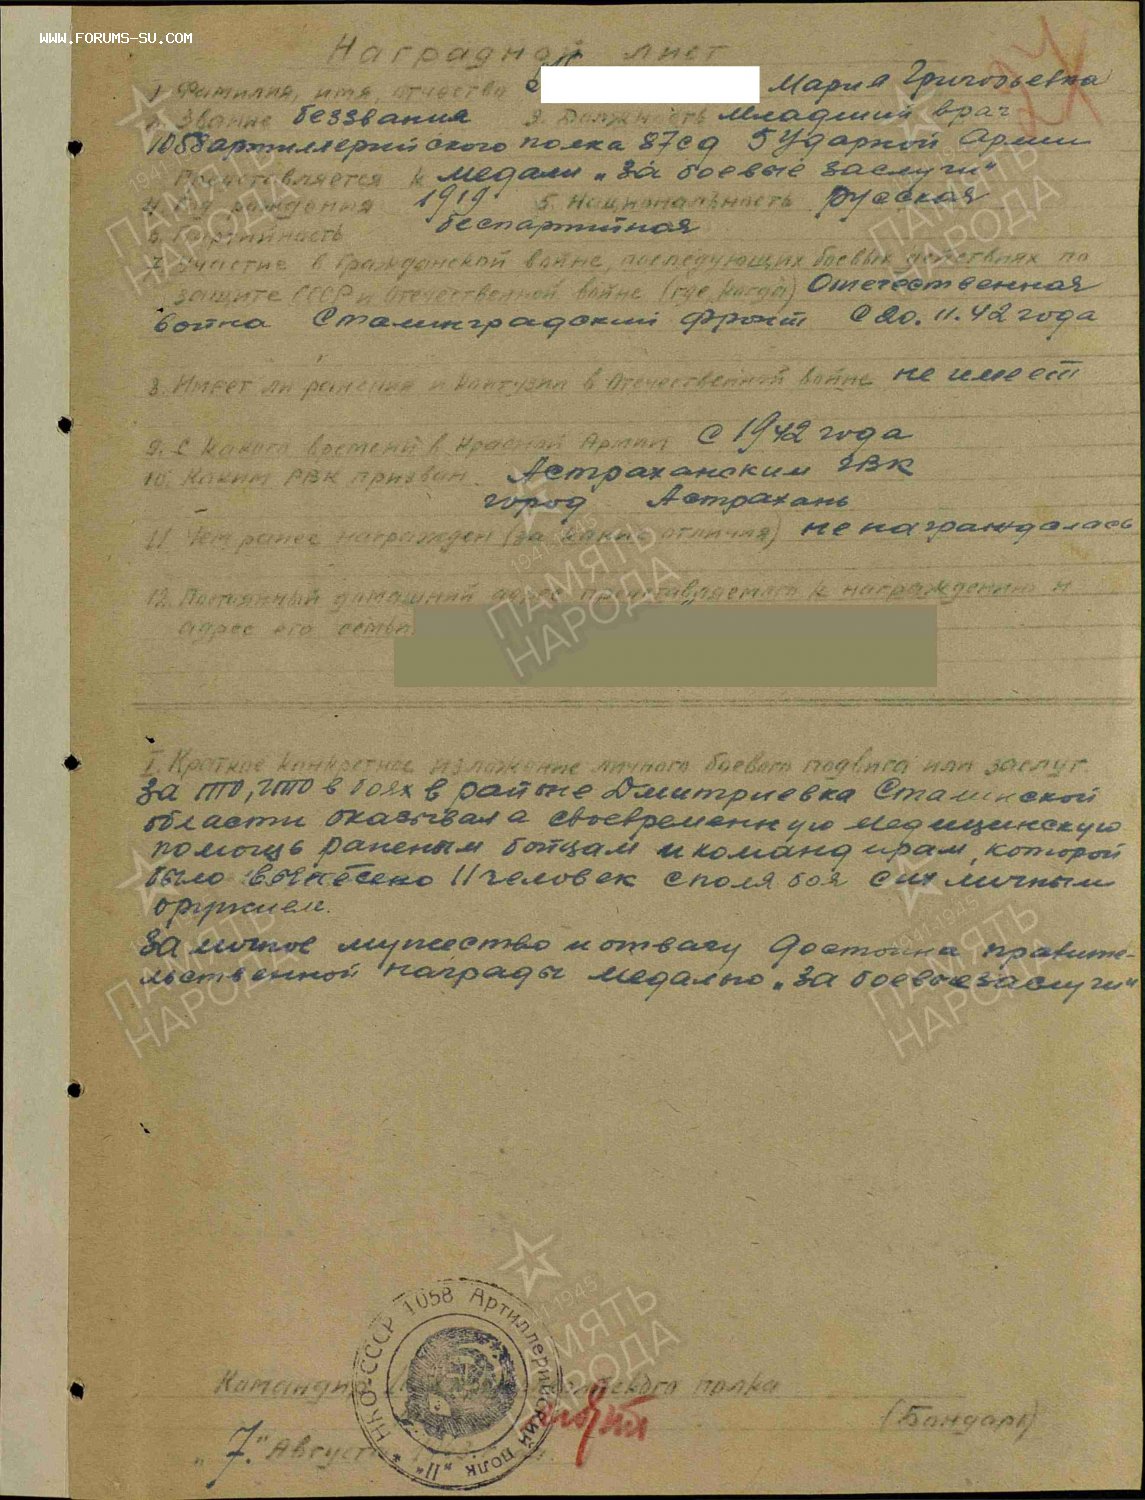 WWW.FORUMS-SU.COM
Наградной лист
1. Фамилия, имя, отчество Мария Григорьевна
2. Звание без звания 3. Должность младший врач
1058 артиллерийского полка 87 сд 5 Ударной Армии
Представляется к медали „За боевые заслуги“
4. Год рождения 1919 5. Национальность русская
6. Партийность беспартийная
7. Участие в гражданской войне, последующих боевых действиях по
защите СССР и Отечественной войне (где, когда) Отечественная
война Сталинградский фронт с 20.11.42 года
8. Имеет ли ранения и контузии в Отечественной войне не имеет
9. С какого времени в Красной Армии с 1942 года
10. Каким РВК призван Астраханским ГВК
город Астрахань
11. Чем ранее награжден (за какие отличия) не награждалась
12. Постоянный домашний адрес представляемого к награждению и
адрес его семьи
I. Краткое конкретное изложение личного боевого подвига или заслуг
За то, что в боях в районе Дмитриевка Сталинской
области оказывала своевременную медицинскую
помощь раненым бойцам и командирам, которой
было вынесено 11 человек с поля боя с их личным
оружием.
За личное мужество и отвагу достойна правите-
льственной награды медалью „За боевые заслуги“
НКО-СССР 1058 Артиллерийский полк „11“
полка
(Бондарь)
„7“ Август
1941-1945
ПАМЯТЬ
НАРОДА
1941-1945
ПАМЯТЬ
НАРОДА
1941-1945
ПАМЯТЬ
НАРОДА
1941-1945
ПАМЯТЬ
НАРОДА
1941-1945
ПАМЯТЬ
НАРОДА
1941-1945
ПАМЯТЬ
НАРОДА